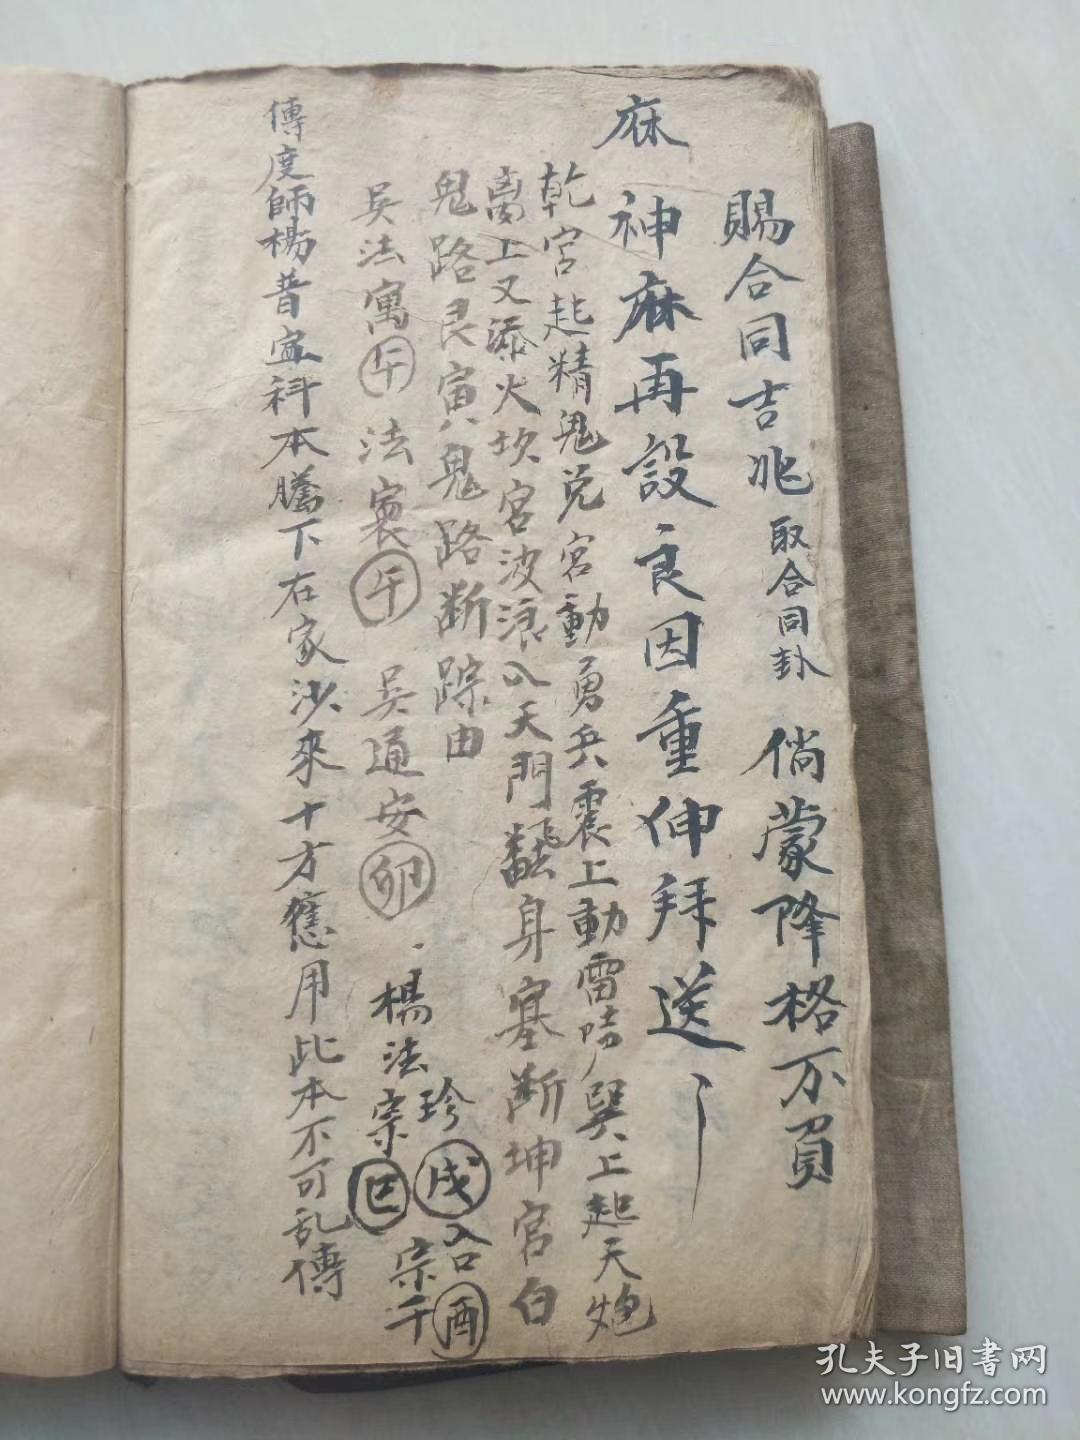 賜合同吉兆 取合同卦 倘蒙降格不負
麻
神麻再設良因重伸拜送
乾宮起精鬼兌宮動勇兵震上動雷 巽上起天炮
离上又添火坎宮波浪入天門翻身塞断坤宮白
鬼路艮寅八鬼路断踪由
吴法寓午法 午 吴通安卯 楊法宗
珍戌
合酉
宗千
傳度師楊普 科本騰下在家沙來十方應用此本不可乱傳
孔夫子旧書网
www.kongfz.com